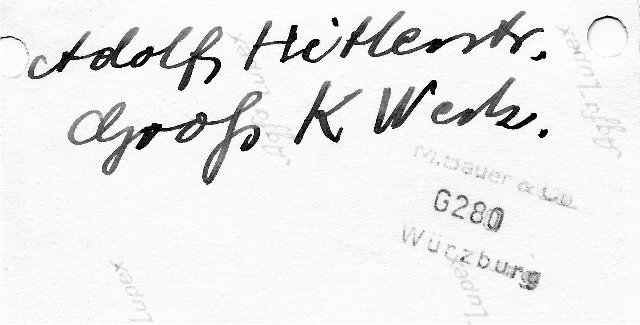 Adolf Hitlerstr.
Groß K Werk.
M. Bauer & Co.
G280
Würzburg
Agfa Lupex
Agfa Lupex
Lupex
Lupex